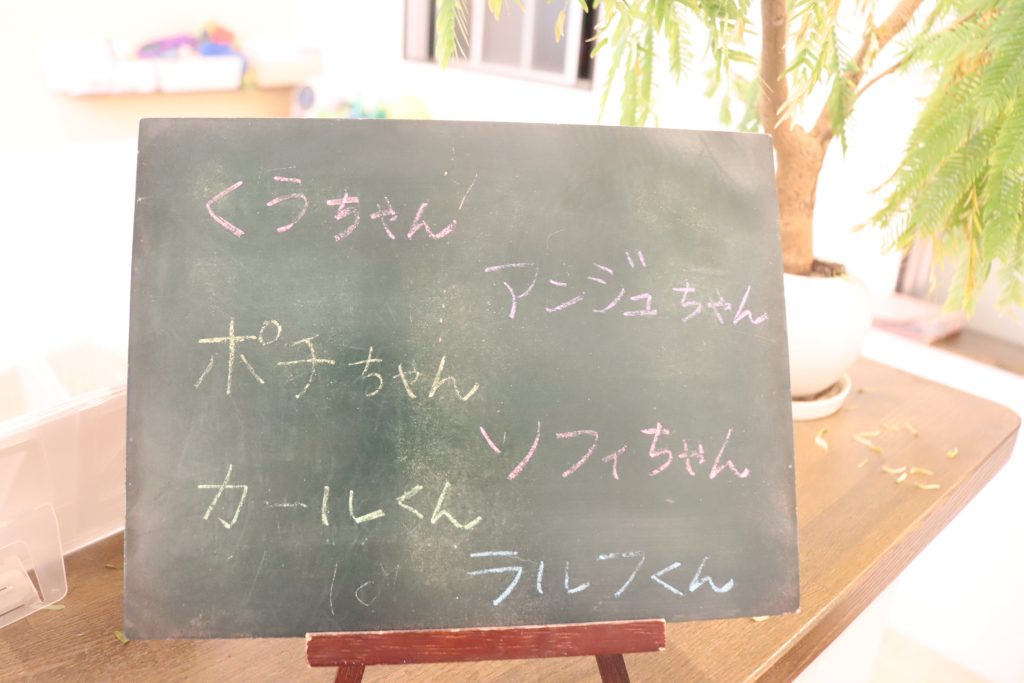 くうちゃん
アンジュちゃん
ポチちゃん
ソフィちゃん
カールくん
ラルフくん